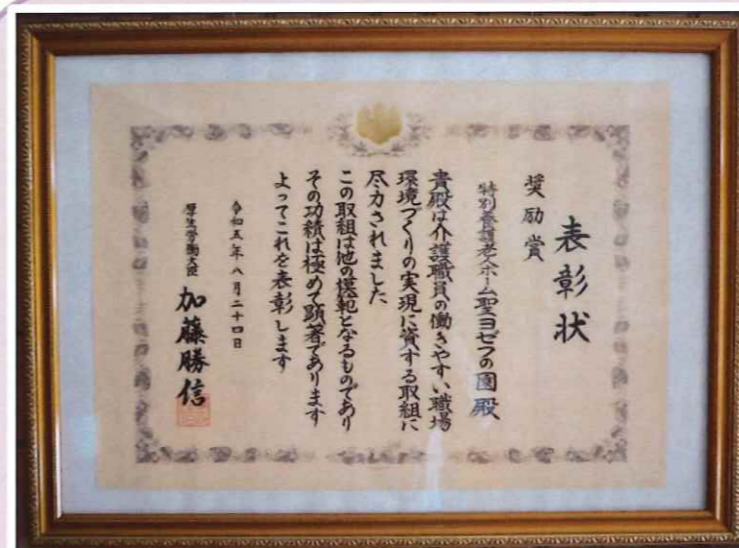 表彰状
奨励賞
特別養護老人ホーム聖ヨゼフの園殿
貴殿は介護職員の働きやすい職場
環境づくりの実現に資する取組に
尽力されました
この取組は他の模範となるものであり
その功績は極めて顕著であります
よってこれを表彰します
令和五年八月二十四日
厚生労働大臣 加藤勝信